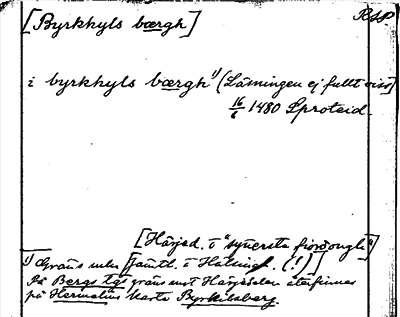 [Byrkhyls bærgh] RAP
i byrkhyls bærgh¹⁾ (Läsningen ej fullt viss)
16/6 1480 Sproteid.
[Härjed. i "synersta fiordongh"]
¹⁾ Gräns mlm Jämtl. i Hälsingl. (!)]
På Bergs tgs gräns mot Härjedalen återfinnes
på Hermelins karta Byrkilsberg.